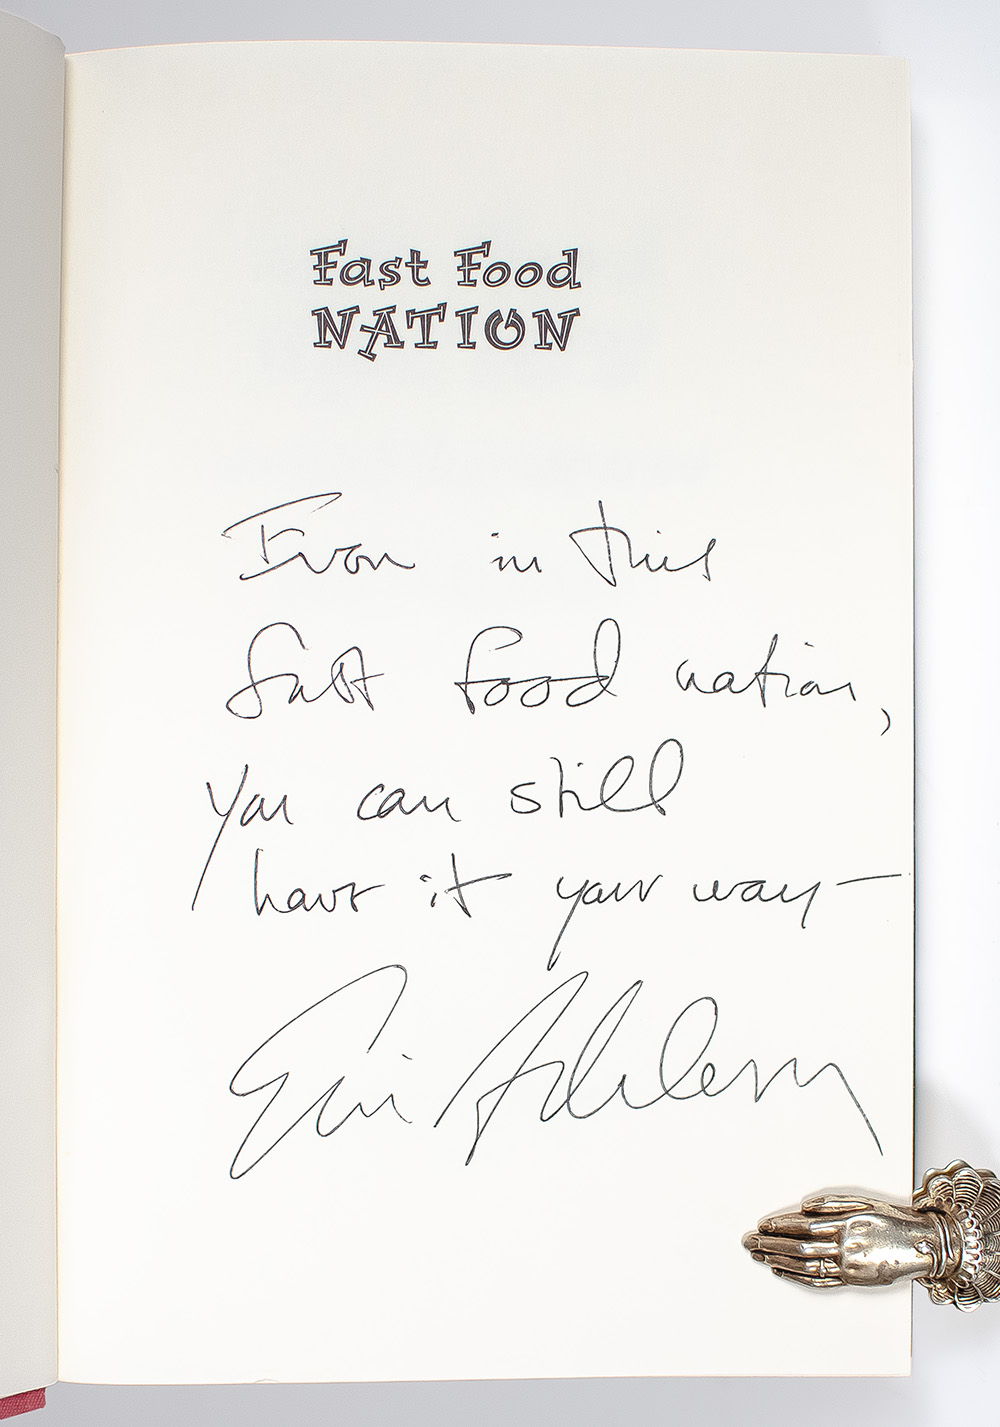 Fast Food
NATION
Even in this
fast food nation,
you can still
have it your way—
Eric Schlosser